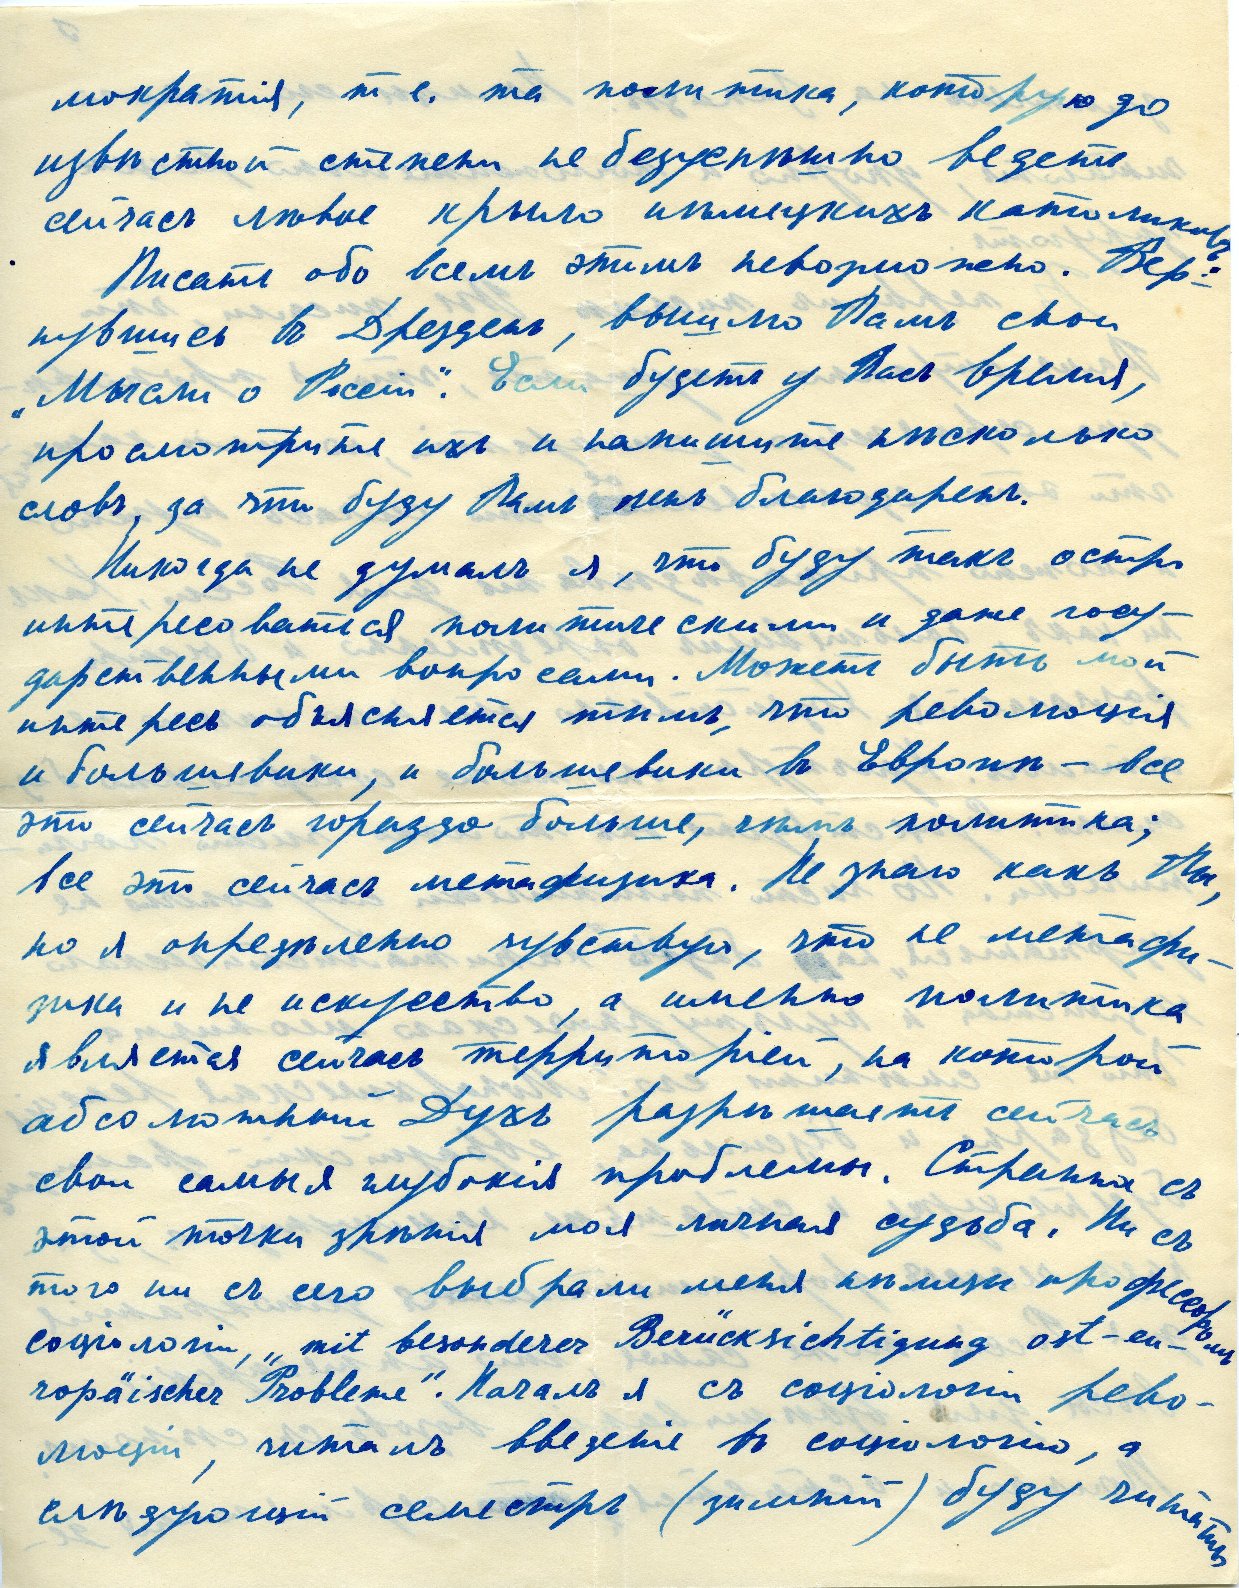 мократія, т. е. та политика, которую до
извѣстной степени не безуспѣшно ведетъ
сейчасъ лѣвое крыло нѣмецкихъ католиковъ.
Писать обо всемъ этимъ невозможно. Вер-
нувшись въ Дрезденъ, вышлю Вамъ свои
„Мысли о Россіи“. Если будетъ у Васъ время,
просмотрите ихъ и напишите нѣсколько
словъ, за что буду Вамъ благодаренъ.
Никогда не думалъ я, что буду такъ остро
интересоваться политическими и даже госу-
дарственными вопросами. Можетъ быть мой
интересъ объясняется тѣмъ, что революція
и большевики, и большевики въ Европѣ – все
это сейчасъ гораздо больше, чѣмъ политика;
все это сейчасъ метафизика. Не знаю какъ Вы,
но я опредѣленно чувствую, что не метафи-
зика и не искусство, а именно политика
является сейчасъ территоріей, на которой
абсолютный Духъ разрѣшаетъ сейчасъ
свои самыя глубокія проблемы. Странна съ
этой точки зрѣнія моя личная судьба. Ни съ
того ни съ сего выбрали меня нѣмцы профессоромъ
соціологіи, „mit besonderer Berücksichtigung ost-eu-
ropäischer Probleme“. Началъ я съ соціологіи рево-
люціи, читалъ введеніе въ соціологію, а
слѣдующій семестръ (зимній) буду читать